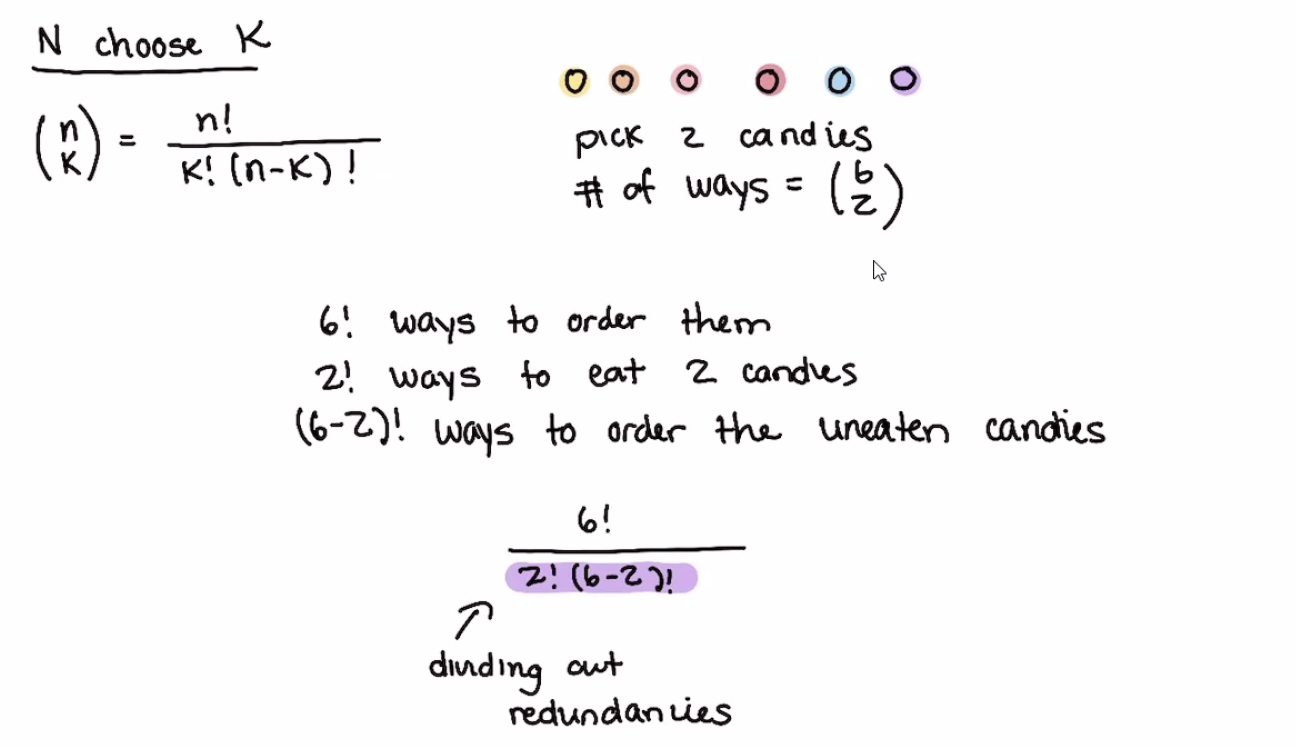 N choose K
(n K) = n! / K! (n-K)!
pick 2 candies
# of ways = (6 2)
6! ways to order them
2! ways to eat 2 candies
(6-2)! ways to order the uneaten candies
6!
2! (6-2)!
dividing out
redundancies